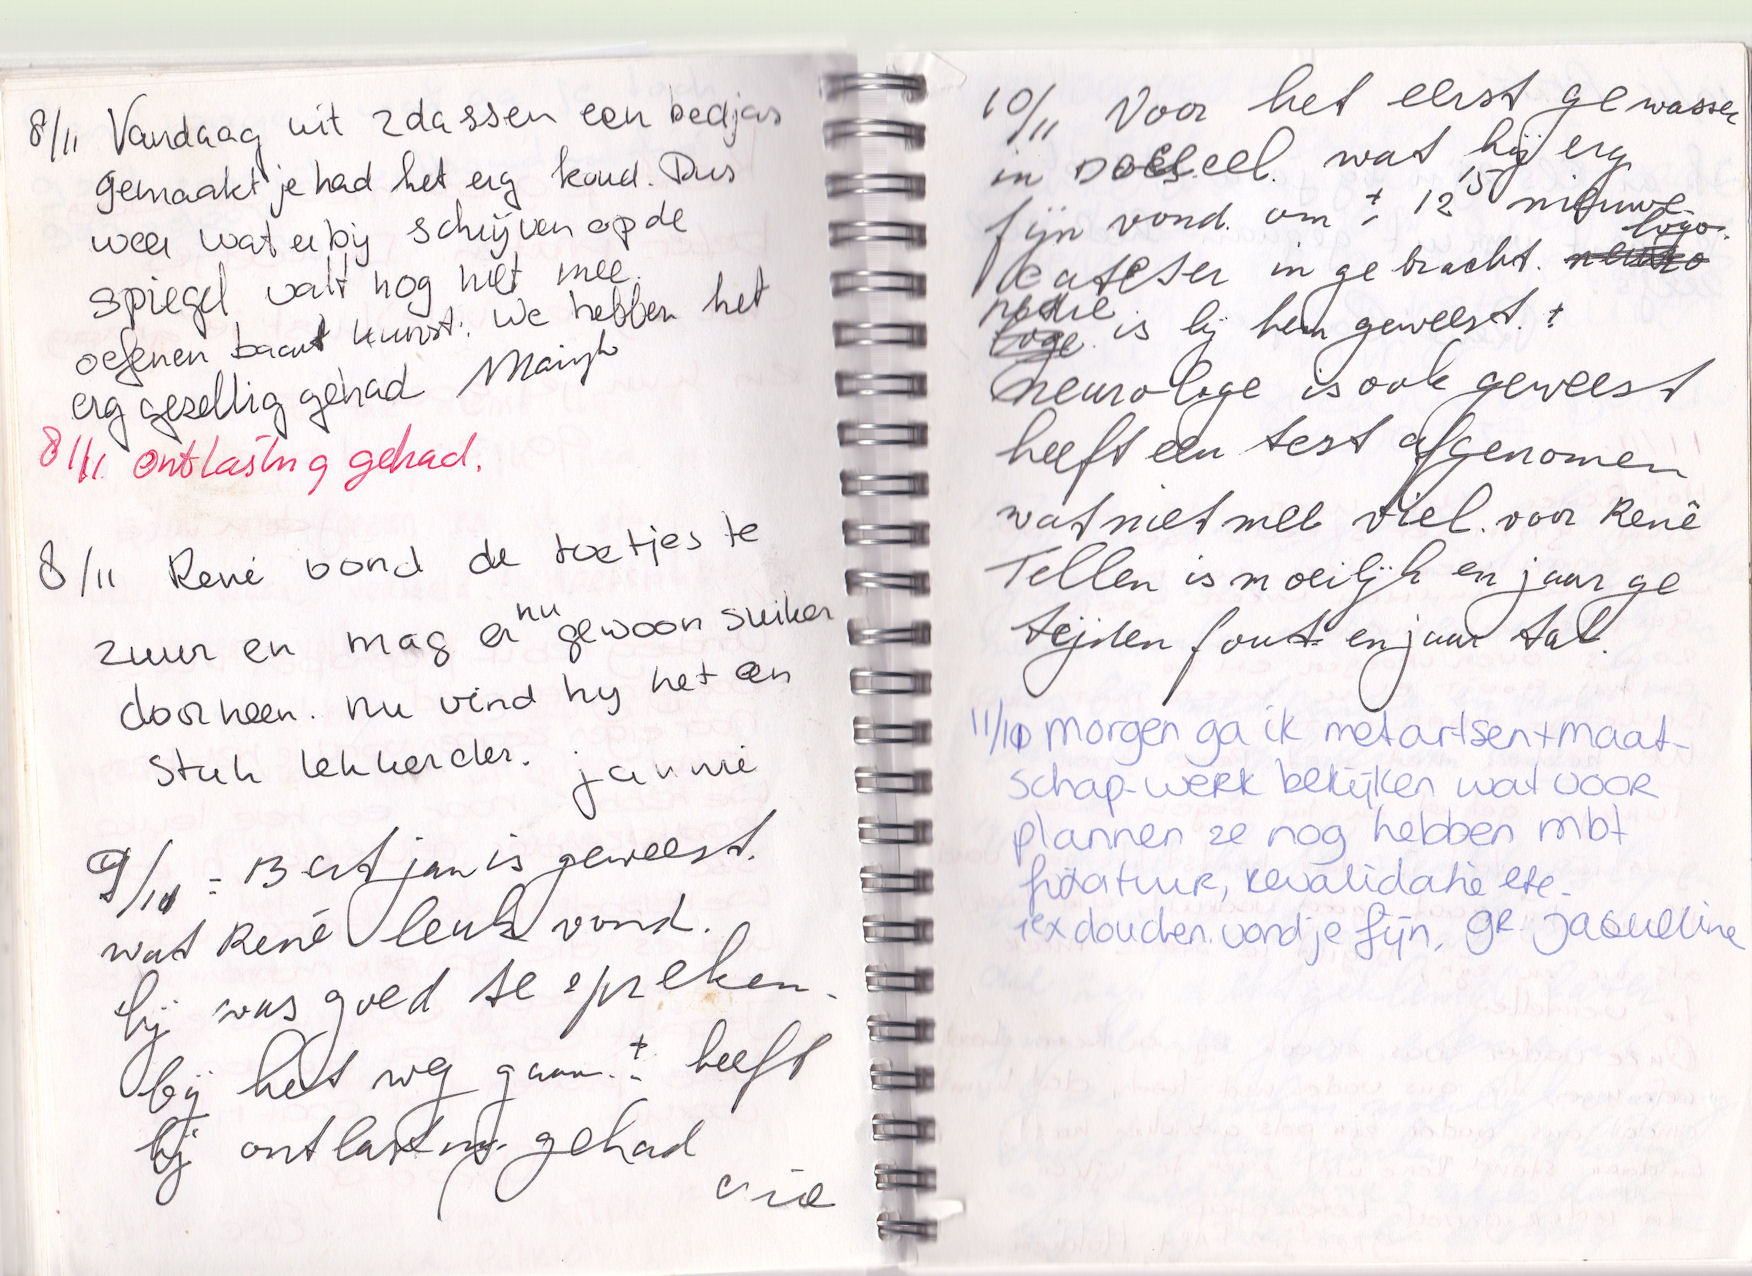 8/11 Vandaag uit 2 dassen een bedjas
gemaakt je had het erg koud. Dus
weer wat erbij schrijven op de
spiegel valt nog niet mee.
oefenen baart kunst. We hebben het
erg gezellig gehad
8/11 ontlasting gehad.
8/11 René vond de toetjes te
zuur en mag er nu gewoon suiker
doorheen. nu vind hij het een
stuk lekkerder. jannie
9/11 = Bert jan is geweest.
wat René leuk vond.
hij was goed te spreken.
bij het weg gaan. ± heeft
hij ontlasting gehad
10/11 Voor het eerst gewassen
in wat hij erg
fijn vond. om ± 12 15 nieuwe
cateter in gebracht. logo
pedie is bij hem geweest. +
neurologe is ook geweest
heeft een test afgenomen
wat niet mee viel. voor René
Tellen is moeilijk en jaar ge
tijden fout en jaar tal.
11/10 morgen ga ik met artsen + maat-
schap-werk bekijken wat voor
plannen ze nog hebben mbt
fixatuur, revalidatie etc.
1ex douchen. vond je fijn, gr. Jaqueline